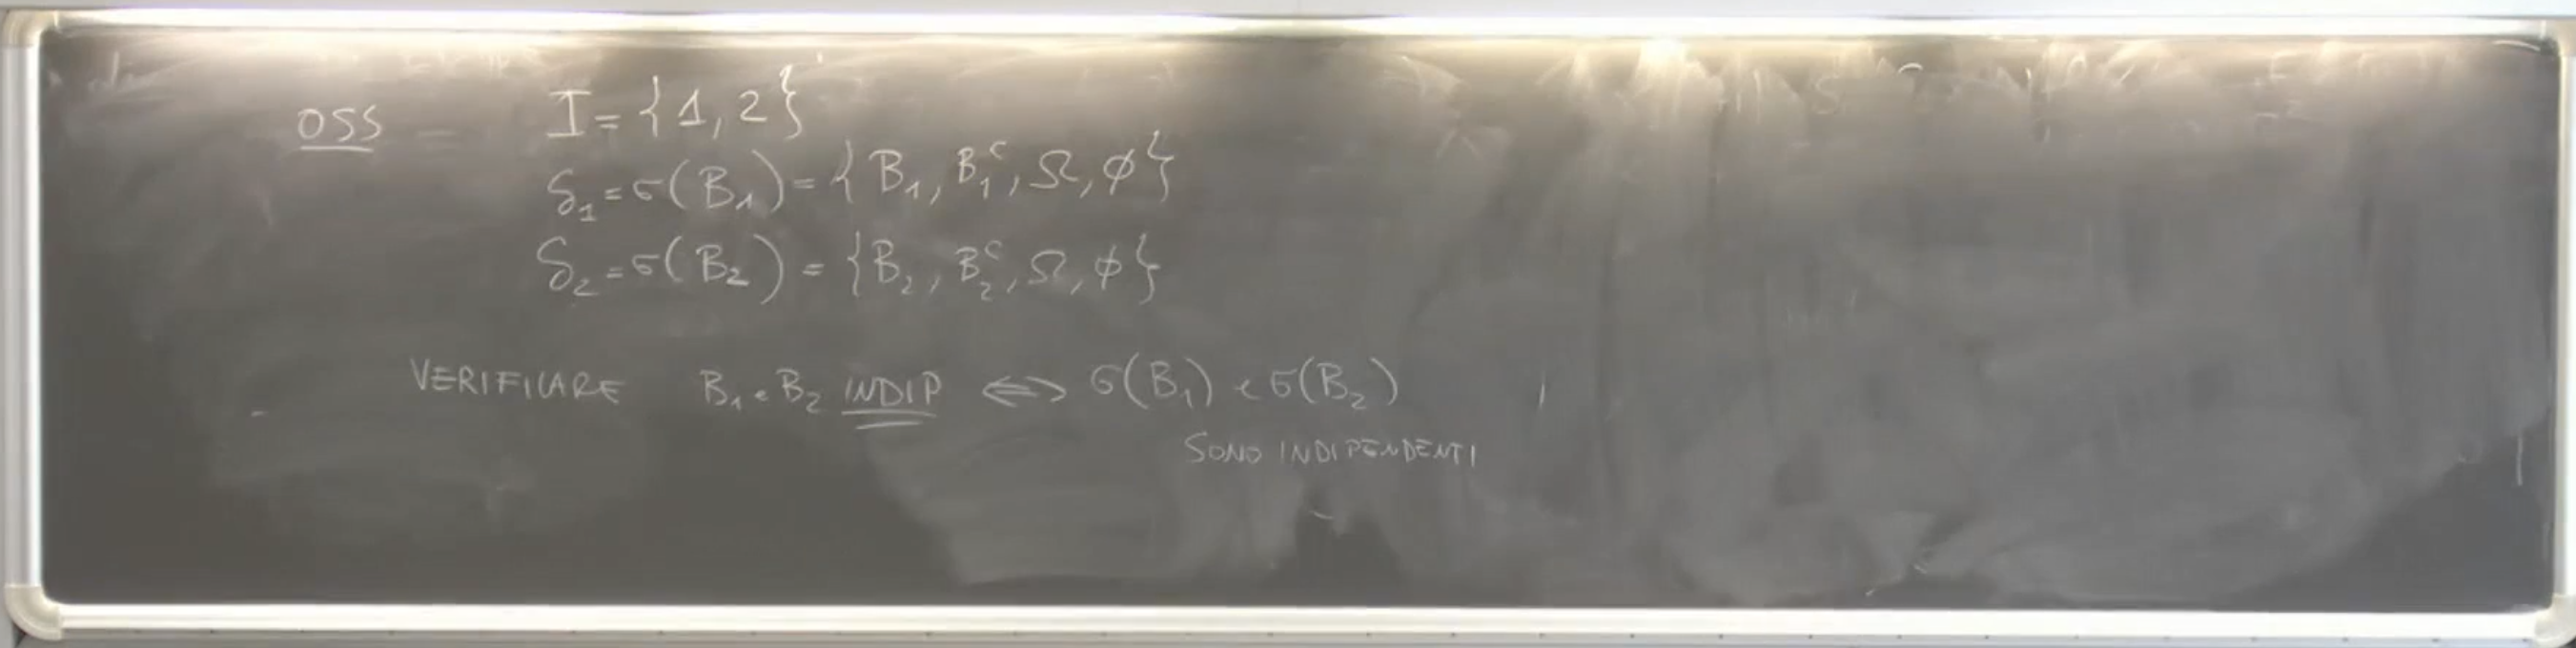 OSS I = {1, 2}
S₁ = σ(B₁) = {B₁, B₁ᶜ, Ω, ϕ}
S₂ = σ(B₂) = {B₂, B₂ᶜ, Ω, ϕ}
VERIFICARE B₁ e B₂ INDIP ⟺ σ(B₁) e σ(B₂)
SONO INDIPENDENTI